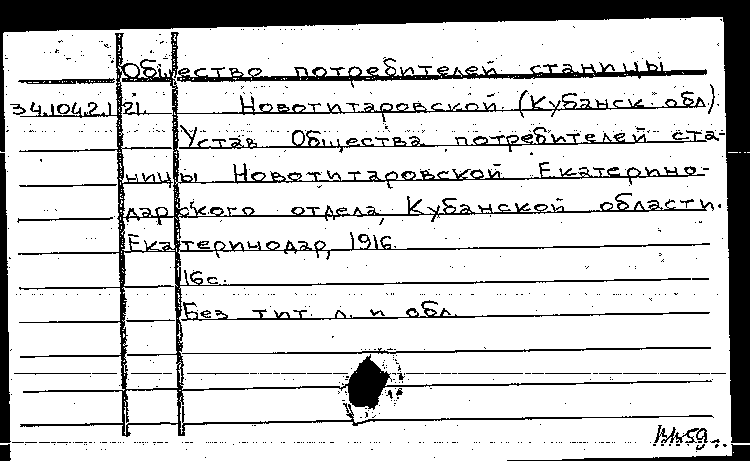 Общество потребителей станицы
34.104.2.121. Новотитаровской (Кубанск. обл).
Устав Общества потребителей ста-
ницы Новотитаровской Екатерино-
дарского отдела, Кубанской области.
Екатеринодар, 1916.
16с.
Без тит. л. и обл.